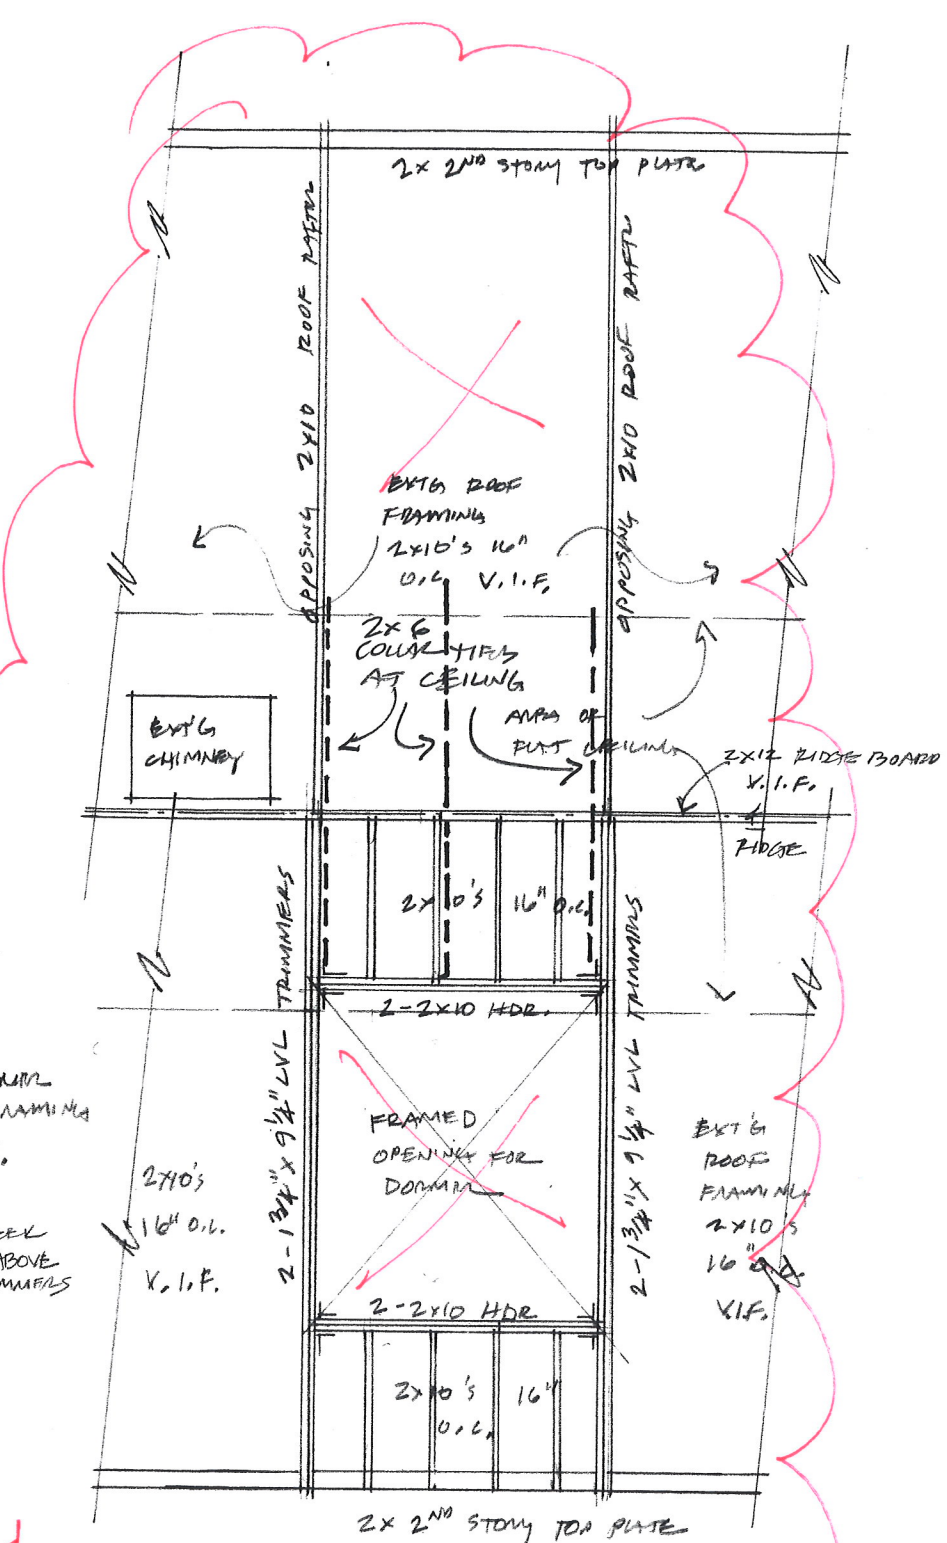 2x 2ND STORY TOP PLATE
OPPOSING 2X10 ROOF RAFTR
OPPOSING 2X10 ROOF RAFTR
EXT'G ROOF
FRAMING
2x10's 16"
O.C. V.I.F.
2x6
COLLAR TIES
AT CEILING
AREA OF
FLAT CEILING
EXT'G
CHIMNEY
2x12 RIDGE BOARD
V.I.F.
RIDGE
2x10's 16" O.C.
2-1 3/4" x 9 1/4" LVL TRIMMERS
2-1 3/4" x 9 1/4" LVL TRIMMERS
2-2x10 HDR.
FRAMED
OPENING FOR
DORMER
FRAMING
2x10's
16" O.C.
V.I.F.
ABOVE
EXT'G
ROOF
FRAMING
2x10's
16" O.C.
V.I.F.
2-2x10 HDR
2x10's 16"
O.C.
2x 2ND STORY TOP PLATE